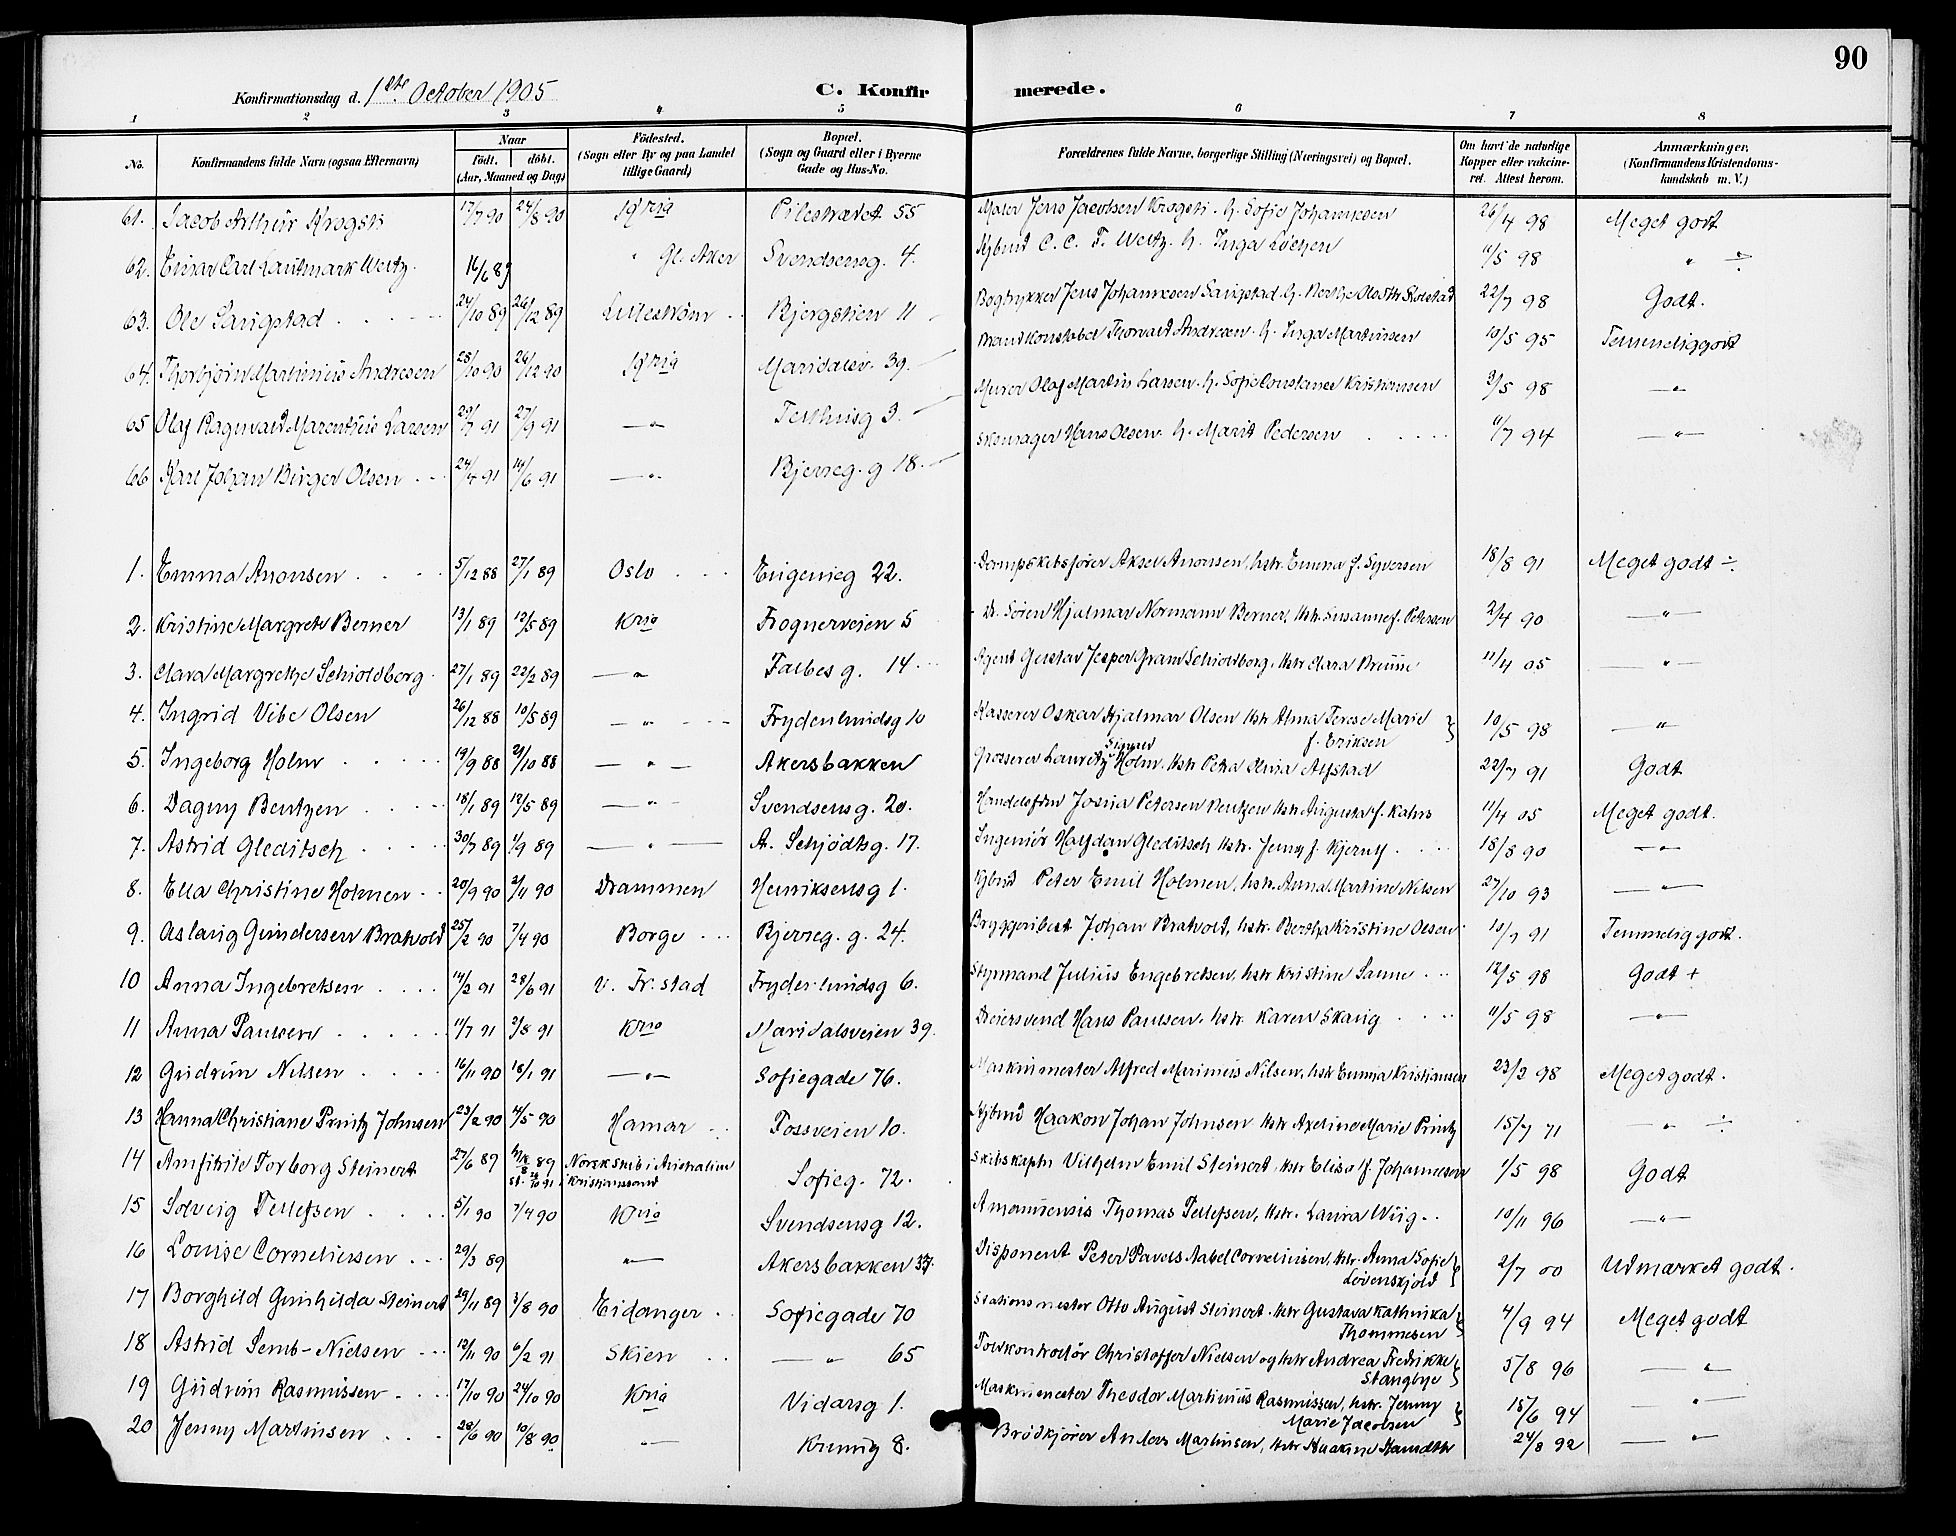 90
Konfirmationsdag d. 1ste October 1905
C. Konfirmerede.
1 2 3 4 5 6 7 8
No. Konfirmandens fulde Navn (ogsaa Efternavn) Naar födt. döbt. (Aar, Maaned og Dag) Födested. (Sogn eller By og paa Landet tillige Gaard) Bopæl. (Sogn og Gaard eller i Byerne Gade og Hus-No. Forældrenes fulde Navne, borgerlige Stilling (Næringsvei) og Bopæl. Om havt de naturlige Kopper eller vaccineret. Attest herom. Anmærkninger. (Konfirmandens Kristendomskundskab m. V.)
61. Jacob Arthur Krogsti 17/7 90 24/8 90 Kria Pilestrædet 55 Maler Jens Jacobsen Krogsti. h. Sofie Johannesen 26/4 98 Meget godt
62. Einar Carl Lautmark Weltz. 16/6 89 " Gl. Aker Svendsensg. 4. Kjbmd C. C. F. Weltz. h. Inga Löchen 11/5 98 " ÷
63. Ole Saugstad 24/10 89 26/12 89 Lilleström Bjergstien 11 Bogtrykker Jens Johannesen Saugstad h. Berthe Olsdtr Skolstad 22/7 98 Godt.
64. Thorbjörn Martinius Andresen 28/10 90 26/12 90 Kria Maridalsv. 39. Brandkonstabel Thorvald Andresen. h. Inga Martinsen 10/5 95 Temmelig godt
65 Olaf Ragnvald Marentius Larsen 29/7 91 27/9 91 — " Testhusg 3. Murer Olaf Martin Larsen. h. Sofie Constance Kristiansen 3/5 98 — " —
66 Karl Johan Birger Olsen 24/4 91 14/6 91 — " Bjerreg. g 18. Skomager Hans Olsen. h. Marit Pedersen 11/7 94 — " —
1. Emma Anonsen 5/12 88 27/1 89 Oslo Eugenieg 22. Dampskibsförer Aksel Anonsen, hstr. Emma f. Syversen 18/8 91 Meget godt ÷
2. Kristine Margrete Berner 13/1 89 12/5 89 Kria Frognerveien 5 Dr. Sören Hjalmar Normann Berner, hstr. Susanne f. Petersen 2/4 90 — " —
3. Clara Margrethe Schioldborg 27/1 89 22/2 89 — " Falbes g. 14. Agent Gustav Jesper Gram Schioldborg. hstr Clara Bruun 11/4 05 — " —
4. Ingrid Vibe Olsen 26/12 88 10/5 89 — " — Frydenlundsg 10 Kasserer Oskar Hjalmar Olsen hstr Alma Terese Marie f. Eriksen 10/5 98 — " —
5. Ingeborg Holm 19/9 88 21/10 88 — " — Akersbakken Grosserer Lauritz Sigurd Holm. hstr Petra Olivia Alfstad 22/7 91 Godt
6. Dagny Bentzen 18/1 89 12/5 89 — " — Svendsensg. 20. Handelsfm Josua Petersen Bentzen hstr Augusta f. Kahrs 11/4 05 Meget godt.
7. Astrid Gleditsch 30/7 89 1/9 89 — " — A. Schjödtsg. 17. Ingeniör Halfdan Gleditsch hstr. Jenny f. Kjerulf 18/8 90 — " —
8. Ella Christine Holmen 20/9 90 2/11 90 Drammen Henriksensg 1. Kjbmd Peter Emil Holmen, hstr. Anna Martine Nilsen 27/10 93 — " —
9. Aslaug Gundersen Bratvold 25/2 90 7/4 90 Borge Bjerreg. g. 24. Bryggeribest Johan Bratvold, hstr. Bertha Kristine Olsen 10/9 91 Temmelig godt.
10 Anna Ingebretsen 14/2 91 28/6 91 v. Fr. stad Frydenlundsg 6. Styrmand Julius Engebretsen, hstr Kristine Sanne 12/5 98 Godt +
11 Anna Paulsen 11/7 91 2/8 91 Kria Maridalsveien 39. Dreiersvend Hans Paulsen. hstr. Karen Skaug 11/5 98 — " —
12 Gudrun Nilsen 16/11 90 18/1 91 — " — Sofiegade 76. Maskinmester Alfred Marinius Nilsen, hstr Emma Kristiansen 23/3 98 Meget godt.
13 Hanna Christiane Printz Johnsen 23/2 90 4/5 90 Hamar Fossveien 10. Kjbmd Haakon Johan Johnsen hstr Axeline Marie Printz 15/7 71 — " ÷
14 Amfitrite Torborg Steinert 27/6 89 89 st. 91 Norsk skib i Australien Kristianssand Sofieg. 72. Skibskaptn Vilhelm Emil Steinert, hstr Elise f. Johannesen 1/5 98 Godt
15 Solveig Tellefsen 5/1 90 7/4 90 Kria Svendsensg 12. Amanuensis Thomas Tellefsen, hstr. Laura Wiig 10/11 96 — " —
16 Louise Corneliussen 29/3 89 — " — Akersbakken 33. Disponent Peter Pavels Aabel Corneliussen, hstr. Anna Sofie Lövenskjold 2/7 00 Udmærket godt.
17 Borghild Gunhilda Steinert 29/11 89 3/8 90 Eidanger Sofiegade 70 Stationsmester Otto August Steinert. hstr Gustava Kathinka Thommesen 4/9 94 Meget godt
18 Astrid Semb-Nielsen 12/11 90 6/2 91 Skien — " 65 Toldkontrollör Christoffer Nielsen og hstr Andrea Fredrikke Stangbye 5/8 96 — " —
19 Gudrun Rasmussen 17/10 90 24/10 90 Kria Vidarsg 1. Maskinmester Theodor Martinius Rasmussen, hstr. Jenny Marie Jacobsen 15/6 94 — " —
20 Jenny Martinsen 28/6 90 10/8 90 — " — 8. Brödkjörer Anders Martinsen, hstr 24/8 92 — " —